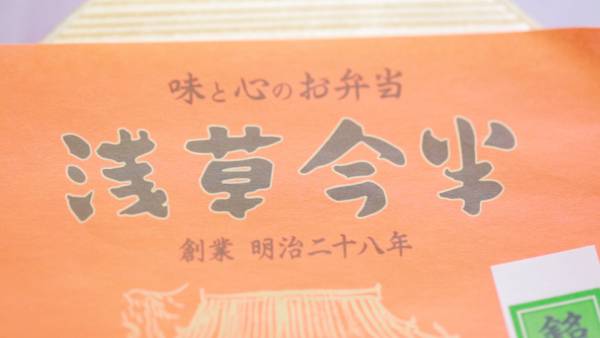 味と心のお弁当
浅草今半
創業 明治二十八年
銘